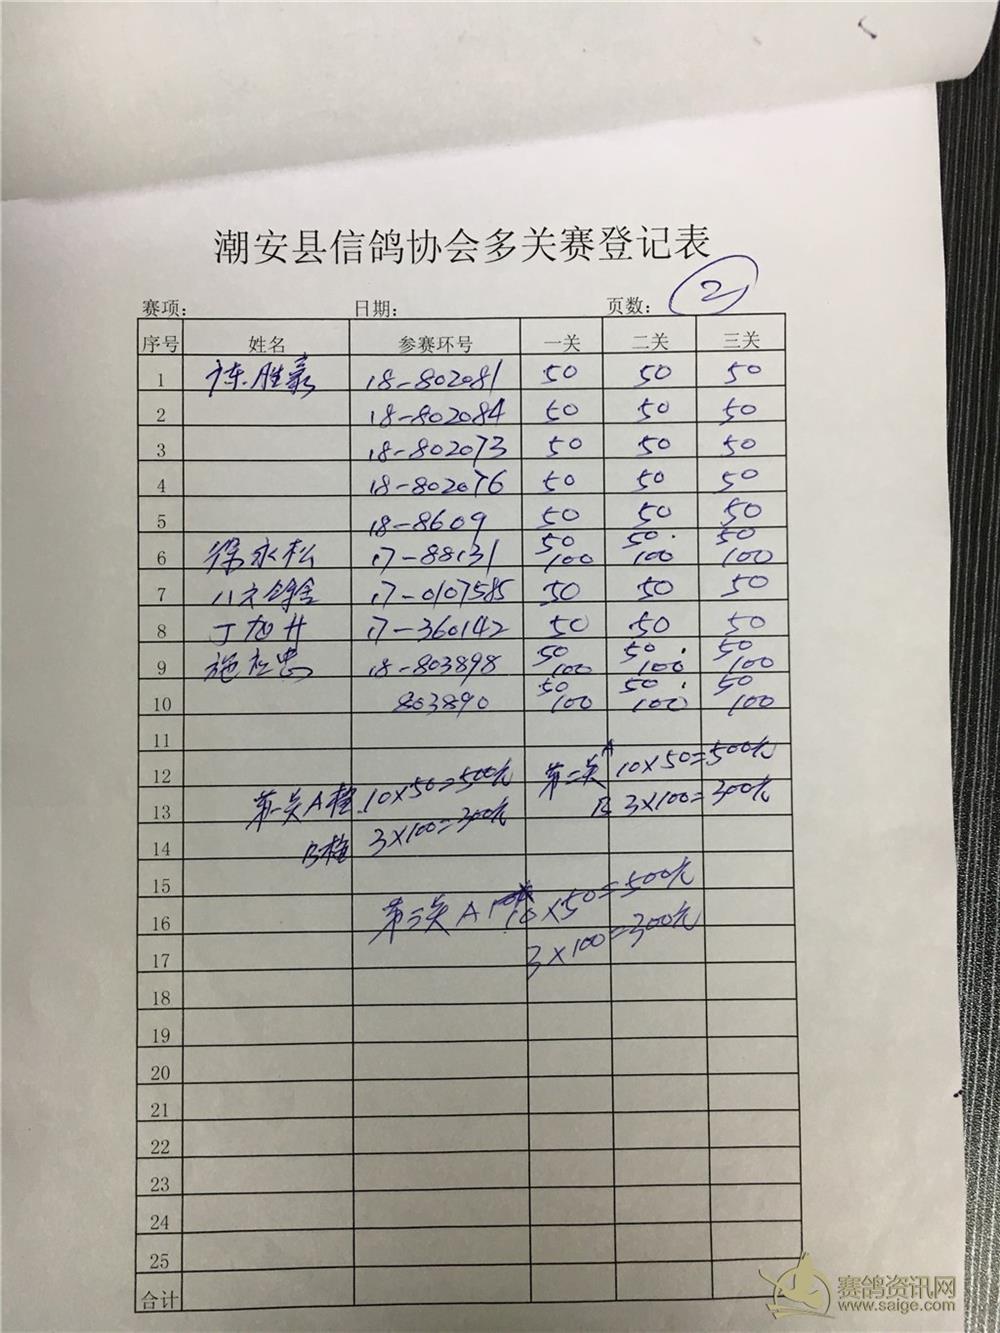 潮安县信鸽协会多关赛登记表
赛项： 日期： 页数： 2
序号 姓名 参赛环号 一关 二关 三关
1 陈胜豪 18-802081 50 50 50
2 18-802084 50 50 50
3 18-802073 50 50 50
4 18-802076 50 50 50
5 18-8609 50 50 50
6 徐永松 17-88131 50 100 50 100 50 100
7 17-0107585 50 50 50
8 丁旭廾 17-360142 50 50 50
9 施忠 18-803898 50 100 50 100 50 100
10 803890 50 100 50 100 50 100
11
12
13
14
15
16
17
18
19
20
21
22
23
24
25
合计
第一关A 10×50=500元
B 3×100=300元
第二关A 10×50=500元
B 3×100=300元
第三关A 10×50=500元
3×100=300元
赛鸽资讯网
www.saige.com